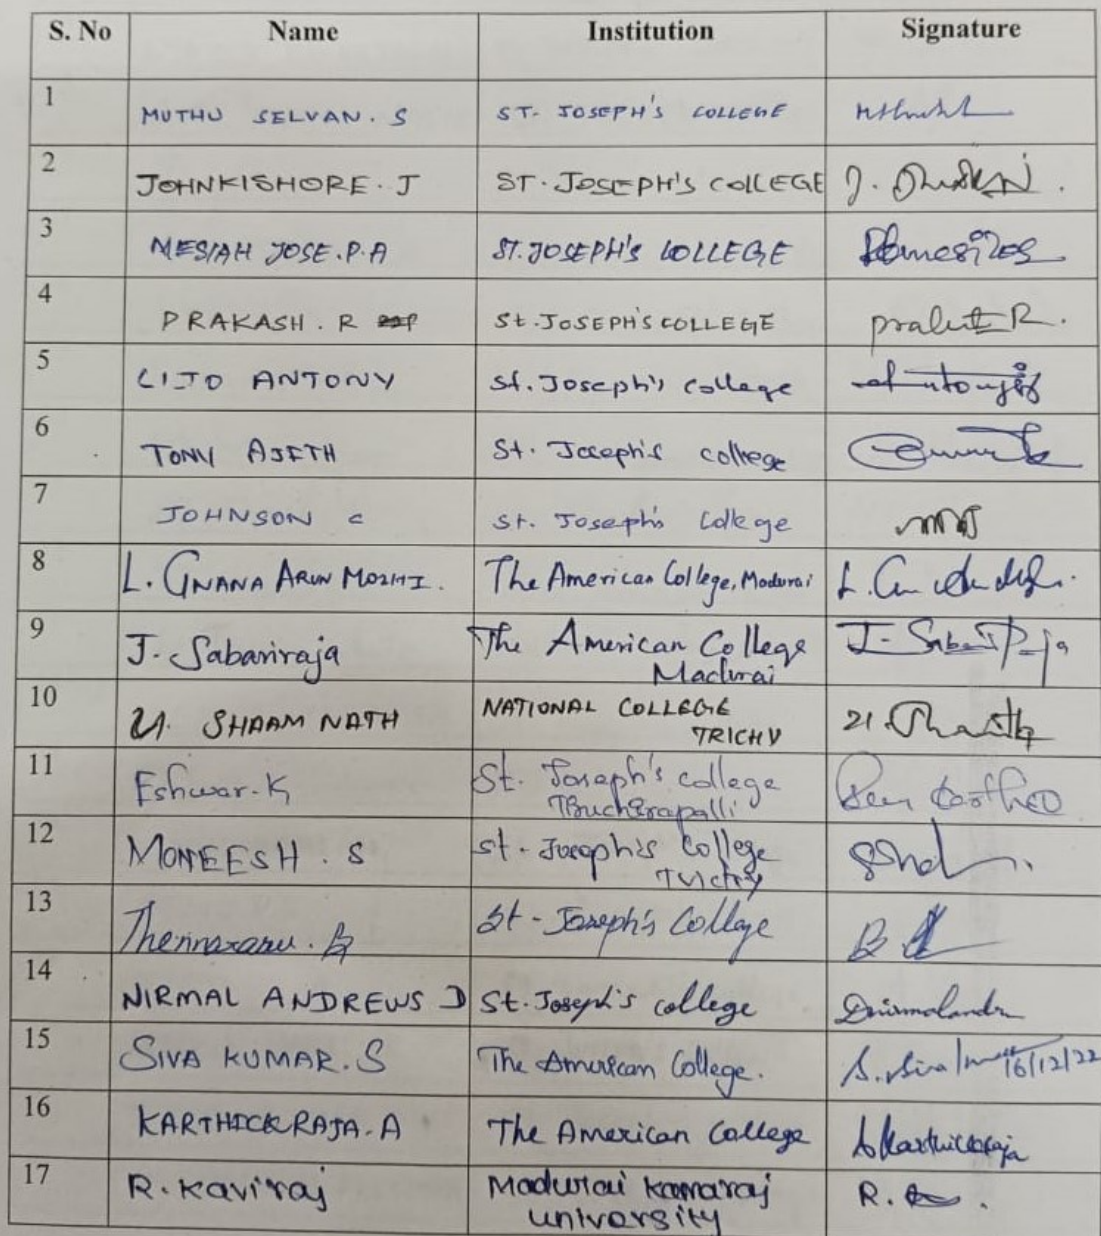 S. No Name Institution Signature
1 MUTHU SELVAN. S ST. JOSEPH'S COLLEGE
2 JOHNKISHORE. J ST. JOSEPH'S COLLEGE J.
3 MESIAH JOSE. P. A ST. JOSEPH'S COLLEGE
4 PRAKASH. R St. JOSEPH'S COLLEGE R.
5 LIJO ANTONY St. Joseph's college
6 TONY AJETH St. Joseph's college
7 JOHNSON C St. Joseph's College
8 L. GNANA ARUN MOZHI. The American College, Madurai L.
9 J. Sabariraja The American College J.
Madurai
10 U. SHAAM NATH NATIONAL COLLEGE
TRICHY
11 Eshwar. K St. Joseph's college
Tiruchirapalli
12 MONEESH. S St. Joseph's College
Trichy
13 St-Joseph's College B
14 NIRMAL ANDREWS D St. Joseph's college
15 SIVA KUMAR. S The American College. S. 16/12/22
16 KARTHICKRAJA. A The American College
17 R. Kaviraj Madurai Kamaraj R.
University